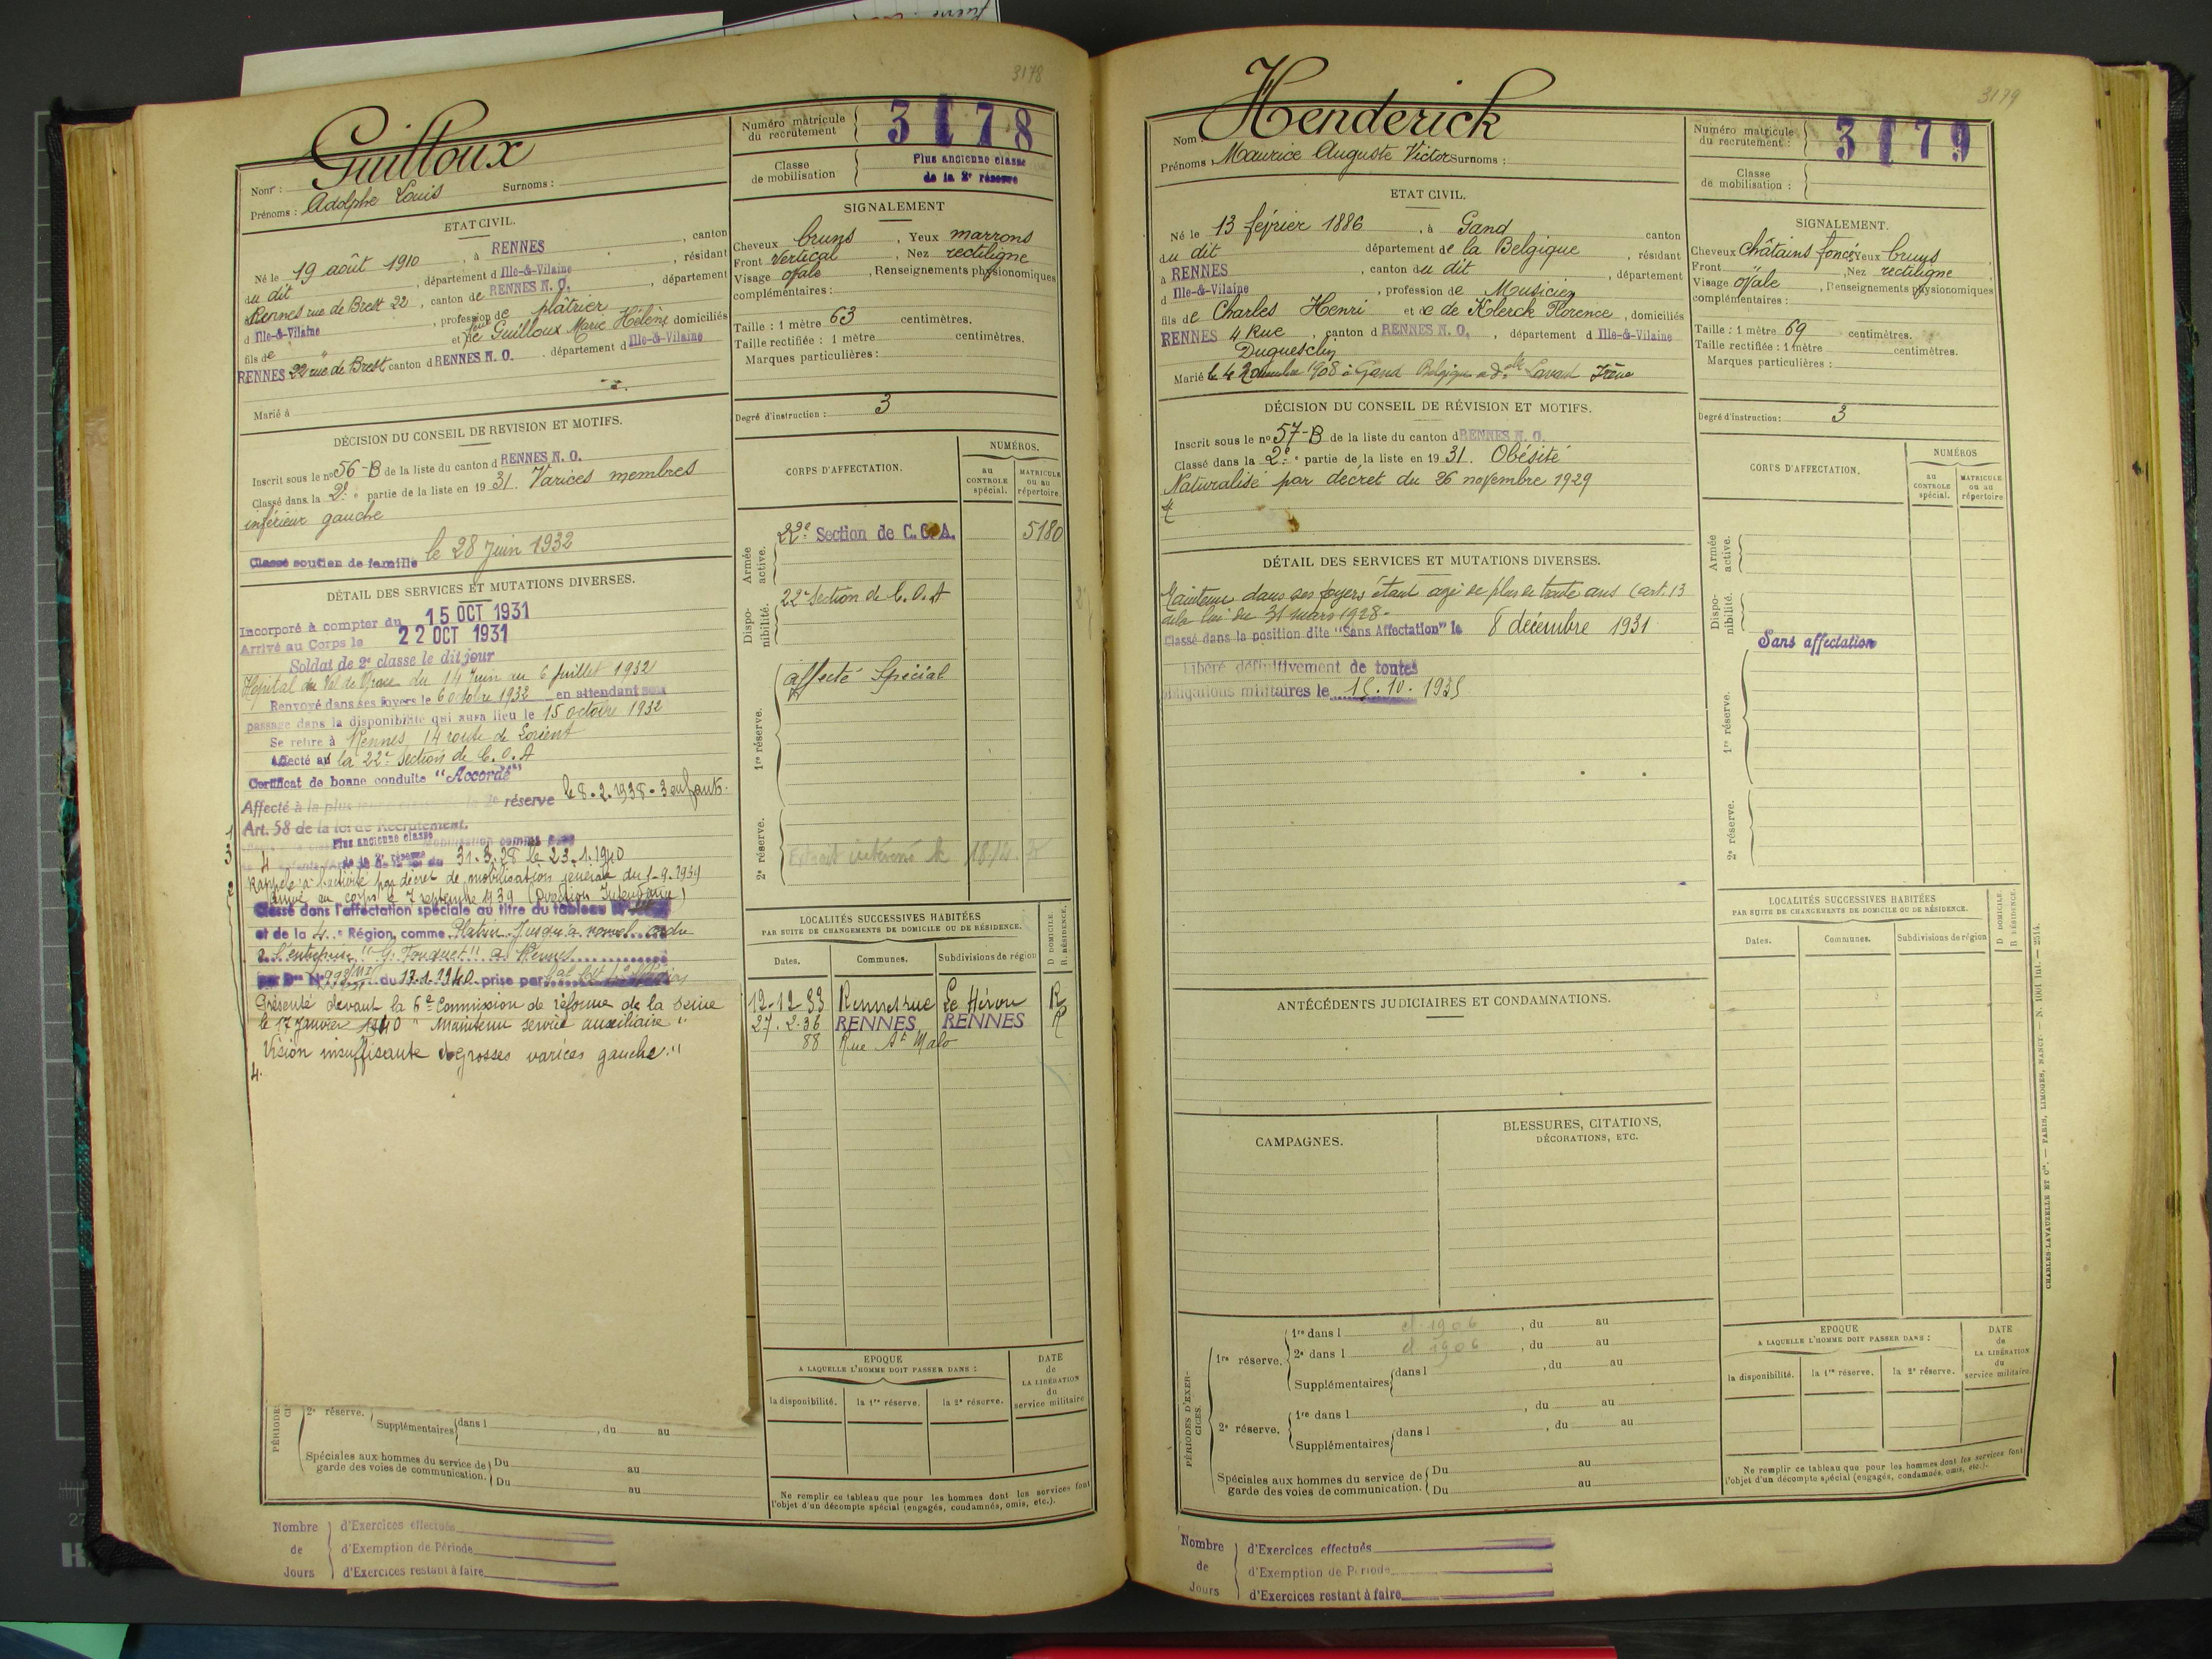 3178
Guilloux
Nom :
Prénoms : Adolphe Louis Surnoms :
ETAT CIVIL.
Né le 19 août 1910, à RENNES, canton
du dit, département d Ille-&-Vilaine, résidant
à Rennes rue de Brest 22, canton de RENNES N. O., département
d Ille-&-Vilaine, profession de plâtrier
fils de " et de Guilloux Marie Hélène domiciliés
RENNES 22 rue de Brest canton d RENNES N. O. département d Ille-&-Vilaine
Marié à
DÉCISION DU CONSEIL DE REVISION ET MOTIFS.
Inscrit sous le nº 56-B de la liste du canton d RENNES N. O.
Classé dans la 2e partie de la liste en 1931. Varices membres
inférieur gauche
Classé soutien de famille le 28 Juin 1932
DÉTAIL DES SERVICES ET MUTATIONS DIVERSES.
Incorporé à compter du 15 OCT 1931
Arrivé au Corps le 22 OCT 1931
Soldat de 2e classe le dit jour
Hôpital du Val de Grace du 14 Juin au 6 Juillet 1932
Renvoyé dans ses foyers le 6 octobre 1932 en attendant son
passage dans la disponibilité qui aura lieu le 15 octobre 1932
Se retire à Rennes, 14 route de Lorient
Affecté à la 22e Section de C.O.A
Certificat de bonne conduite "Accordé"
Affecté à la plus réserve le 8.2.1938 - 3 enfants.
Art. 58 de la loi de Recrutement.
Plus ancienne classe
de la 2e réserve
31.3.28 le 23.1.1940
Rappelé à l'activité par décret de mobilisation générale du 1-9-1939
Arrivé au corps le 7 septembre 1939 (Direction Intendance)
Classé dans l'affectation spéciale au titre du tableau
et de la 4e Région, comme Platrier Jusqu'à nouvel ordre
à l'entreprise "G. Fouquet" à Rennes
du 17.1.1940 prise par
Présenté devant la 6e Commission de réforme de la Seine
le 17 Janvier 1940 " Maintenu service auxiliaire "
Vision insuffisante et grosses varices gauche."
4.
2e réserve.
Supplémentaires dans l , du au
Spéciales aux hommes du service de
garde des voies de communication.
Du au
Du au
Nombre de Jours
d'Exercices effectués
d'Exemption de Période
d'Exercices restant à faire
Numéro matricule
du recrutement
3178
Classe
de mobilisation
Plus ancienne classe
de la 2e réserve
SIGNALEMENT
Cheveux bruns, Yeux marrons
Front Vertical, Nez rectiligne
Visage ovale, Renseignements physionomiques
complémentaires :
Taille : 1 mètre 63 centimètres.
Taille rectifiée : 1 mètre centimètres.
Marques particulières :
Degré d'instruction : 3
CORPS D'AFFECTATION.
NUMÉROS.
au CONTROLE spécial.
MATRICULE ou au répertoire.
Armée active.
22e Section de C. O. A. 5180
Disponibilité.
22e Section de C.O.A
1re réserve.
affecté Spécial
2e réserve.
LOCALITÉS SUCCESSIVES HABITÉES
PAR SUITE DE CHANGEMENTS DE DOMICILE OU DE RÉSIDENCE.
D DOMICILE. R RÉSIDENCE.
Dates. Communes. Subdivisions de région
12-12-33 Rennes rue Le Héron R
27.2.36 RENNES RENNES R
88 Rue St Malo
EPOQUE
A LAQUELLE L'HOMME DOIT PASSER DANS :
la disponibilité. la 1re réserve. la 2e réserve.
DATE de LA LIBÉRATION du service militaire
Ne remplir ce tableau que pour les hommes dont les services font
l'objet d'un décompte spécial (engagés, condamnés, omis, etc.).
3179
Henderick
Nom :
Prénoms : Maurice Auguste Victor Surnoms :
ETAT CIVIL.
Né le 13 février 1886, à Gand canton
du dit département de la Belgique, résidant
à RENNES, canton du dit, département
d Ille-&-Vilaine, profession de Musicien
fils de Charles Henri et de de Klerck Florence, domiciliés
RENNES 4 Rue, canton d RENNES N. O., département d Ille-&-Vilaine
Duguesclin
Marié le 4 1908 à Gand Belgique à delle Irène
DÉCISION DU CONSEIL DE RÉVISION ET MOTIFS.
Inscrit sous le nº 57-B de la liste du canton d RENNES N. O.
Classé dans la 2e partie de la liste en 1931. Obésité
Naturalisé par décret du 26 novembre 1929
DÉTAIL DES SERVICES ET MUTATIONS DIVERSES.
Maintenu dans ses foyers étant agé de plus de trente ans (art. 13
de la loi du 31 mars 1928.
Classé dans la position dite "Sans Affectation" le 8 décembre 1931
Libéré définitivement de toutes
obligations militaires le 15.10.1935
ANTÉCÉDENTS JUDICIAIRES ET CONDAMNATIONS.
CAMPAGNES.
BLESSURES, CITATIONS,
DÉCORATIONS, ETC.
PÉRIODES D'EXERCICES.
1re réserve.
1re dans l cl 1906, du au
2e dans l cl 1906, du au
Supplémentaires dans l , du au
2e réserve.
1re dans l , du au
Supplémentaires dans l , du au
Spéciales aux hommes du service de
garde des voies de communication.
Du au
Du au
Nombre de Jours
d'Exercices effectués
d'Exemption de Période
d'Exercices restant à faire
Numéro matricule
du recrutement :
3179
Classe
de mobilisation :
SIGNALEMENT.
Cheveux Châtains foncés Yeux bruns
Front ", Nez rectiligne
Visage ovale, Renseignements physionomiques
complémentaires :
Taille : 1 mètre 69 centimètres.
Taille rectifiée : 1 mètre centimètres.
Marques particulières :
Degré d'instruction : 3
CORPS D'AFFECTATION.
NUMÉROS
au CONTROLE spécial.
MATRICULE ou au répertoire
Armée active.
Disponibilité.
Sans affectation
1re réserve.
2e réserve.
LOCALITÉS SUCCESSIVES HABITÉES
PAR SUITE DE CHANGEMENTS DE DOMICILE OU DE RÉSIDENCE.
D DOMICILE. R RÉSIDENCE.
Dates. Communes. Subdivisions de région
EPOQUE
A LAQUELLE L'HOMME DOIT PASSER DANS :
la disponibilité. la 1re réserve. la 2e réserve.
DATE de LA LIBÉRATION du service militaire.
Ne remplir ce tableau que pour les hommes dont les services font
l'objet d'un décompte spécial (engagés, condamnés, omis, etc.).
CHARLES-LAVAUZELLE ET Cie. — PARIS, LIMOGES, NANCY — N. 1001 Int. — 2514.